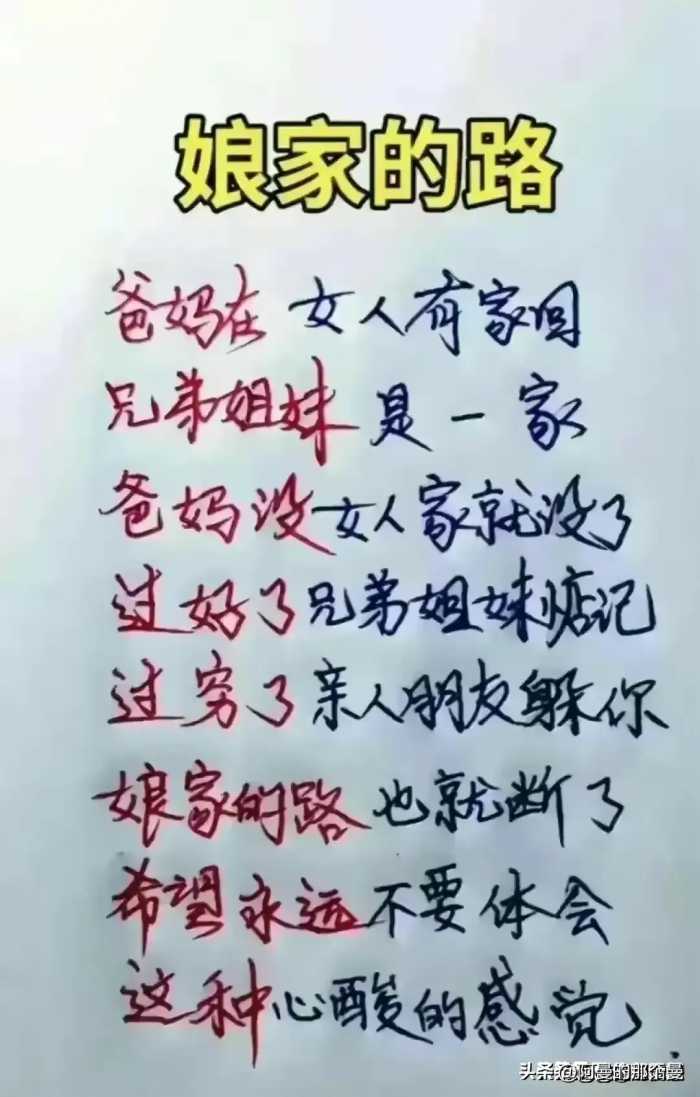 娘家的路
爸妈在 女人有家回
兄弟姐妹 是一家
爸妈没女人家就没了
过好了兄弟姐妹惦记
过穷了亲人朋友躲你
娘家的路 也就断了
希望永远不要体会
这种心酸的感觉